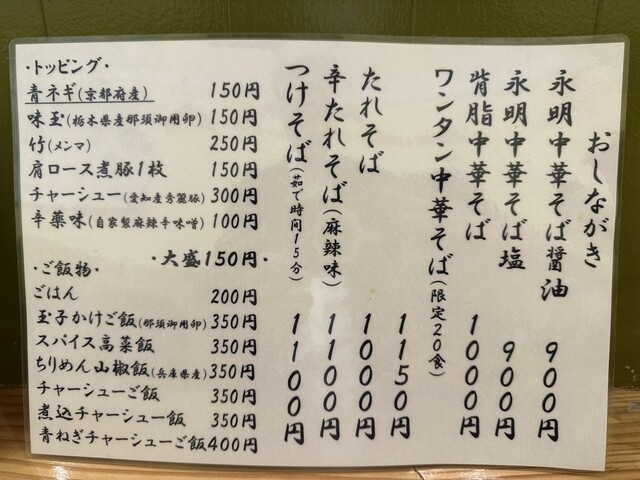 おしながき
永明中華そば醤油 900円
永明中華そば塩 900円
背脂中華そば 1000円
ワンタン中華そば(限定20食) 1150円
たれそば 1000円
辛たれそば(麻辣味) 1100円
つけそば(茹で時間15分) 1100円
・トッピング・
青ネギ(京都府産) 150円
味玉(栃木県産那須御用卵) 150円
竹(メンマ) 250円
肩ロース煮豚1枚 150円
チャーシュー(愛知産秀麗豚) 300円
辛薬味(自家製麻辣辛味噌) 100円
・大盛150円・
・ご飯物・
ごはん 200円
玉子かけご飯(那須御用卵) 350円
スパイス高菜飯 350円
ちりめん山椒飯(兵庫県産) 350円
チャーシューご飯 350円
煮込チャーシュー飯 350円
青ねぎチャーシューご飯 400円